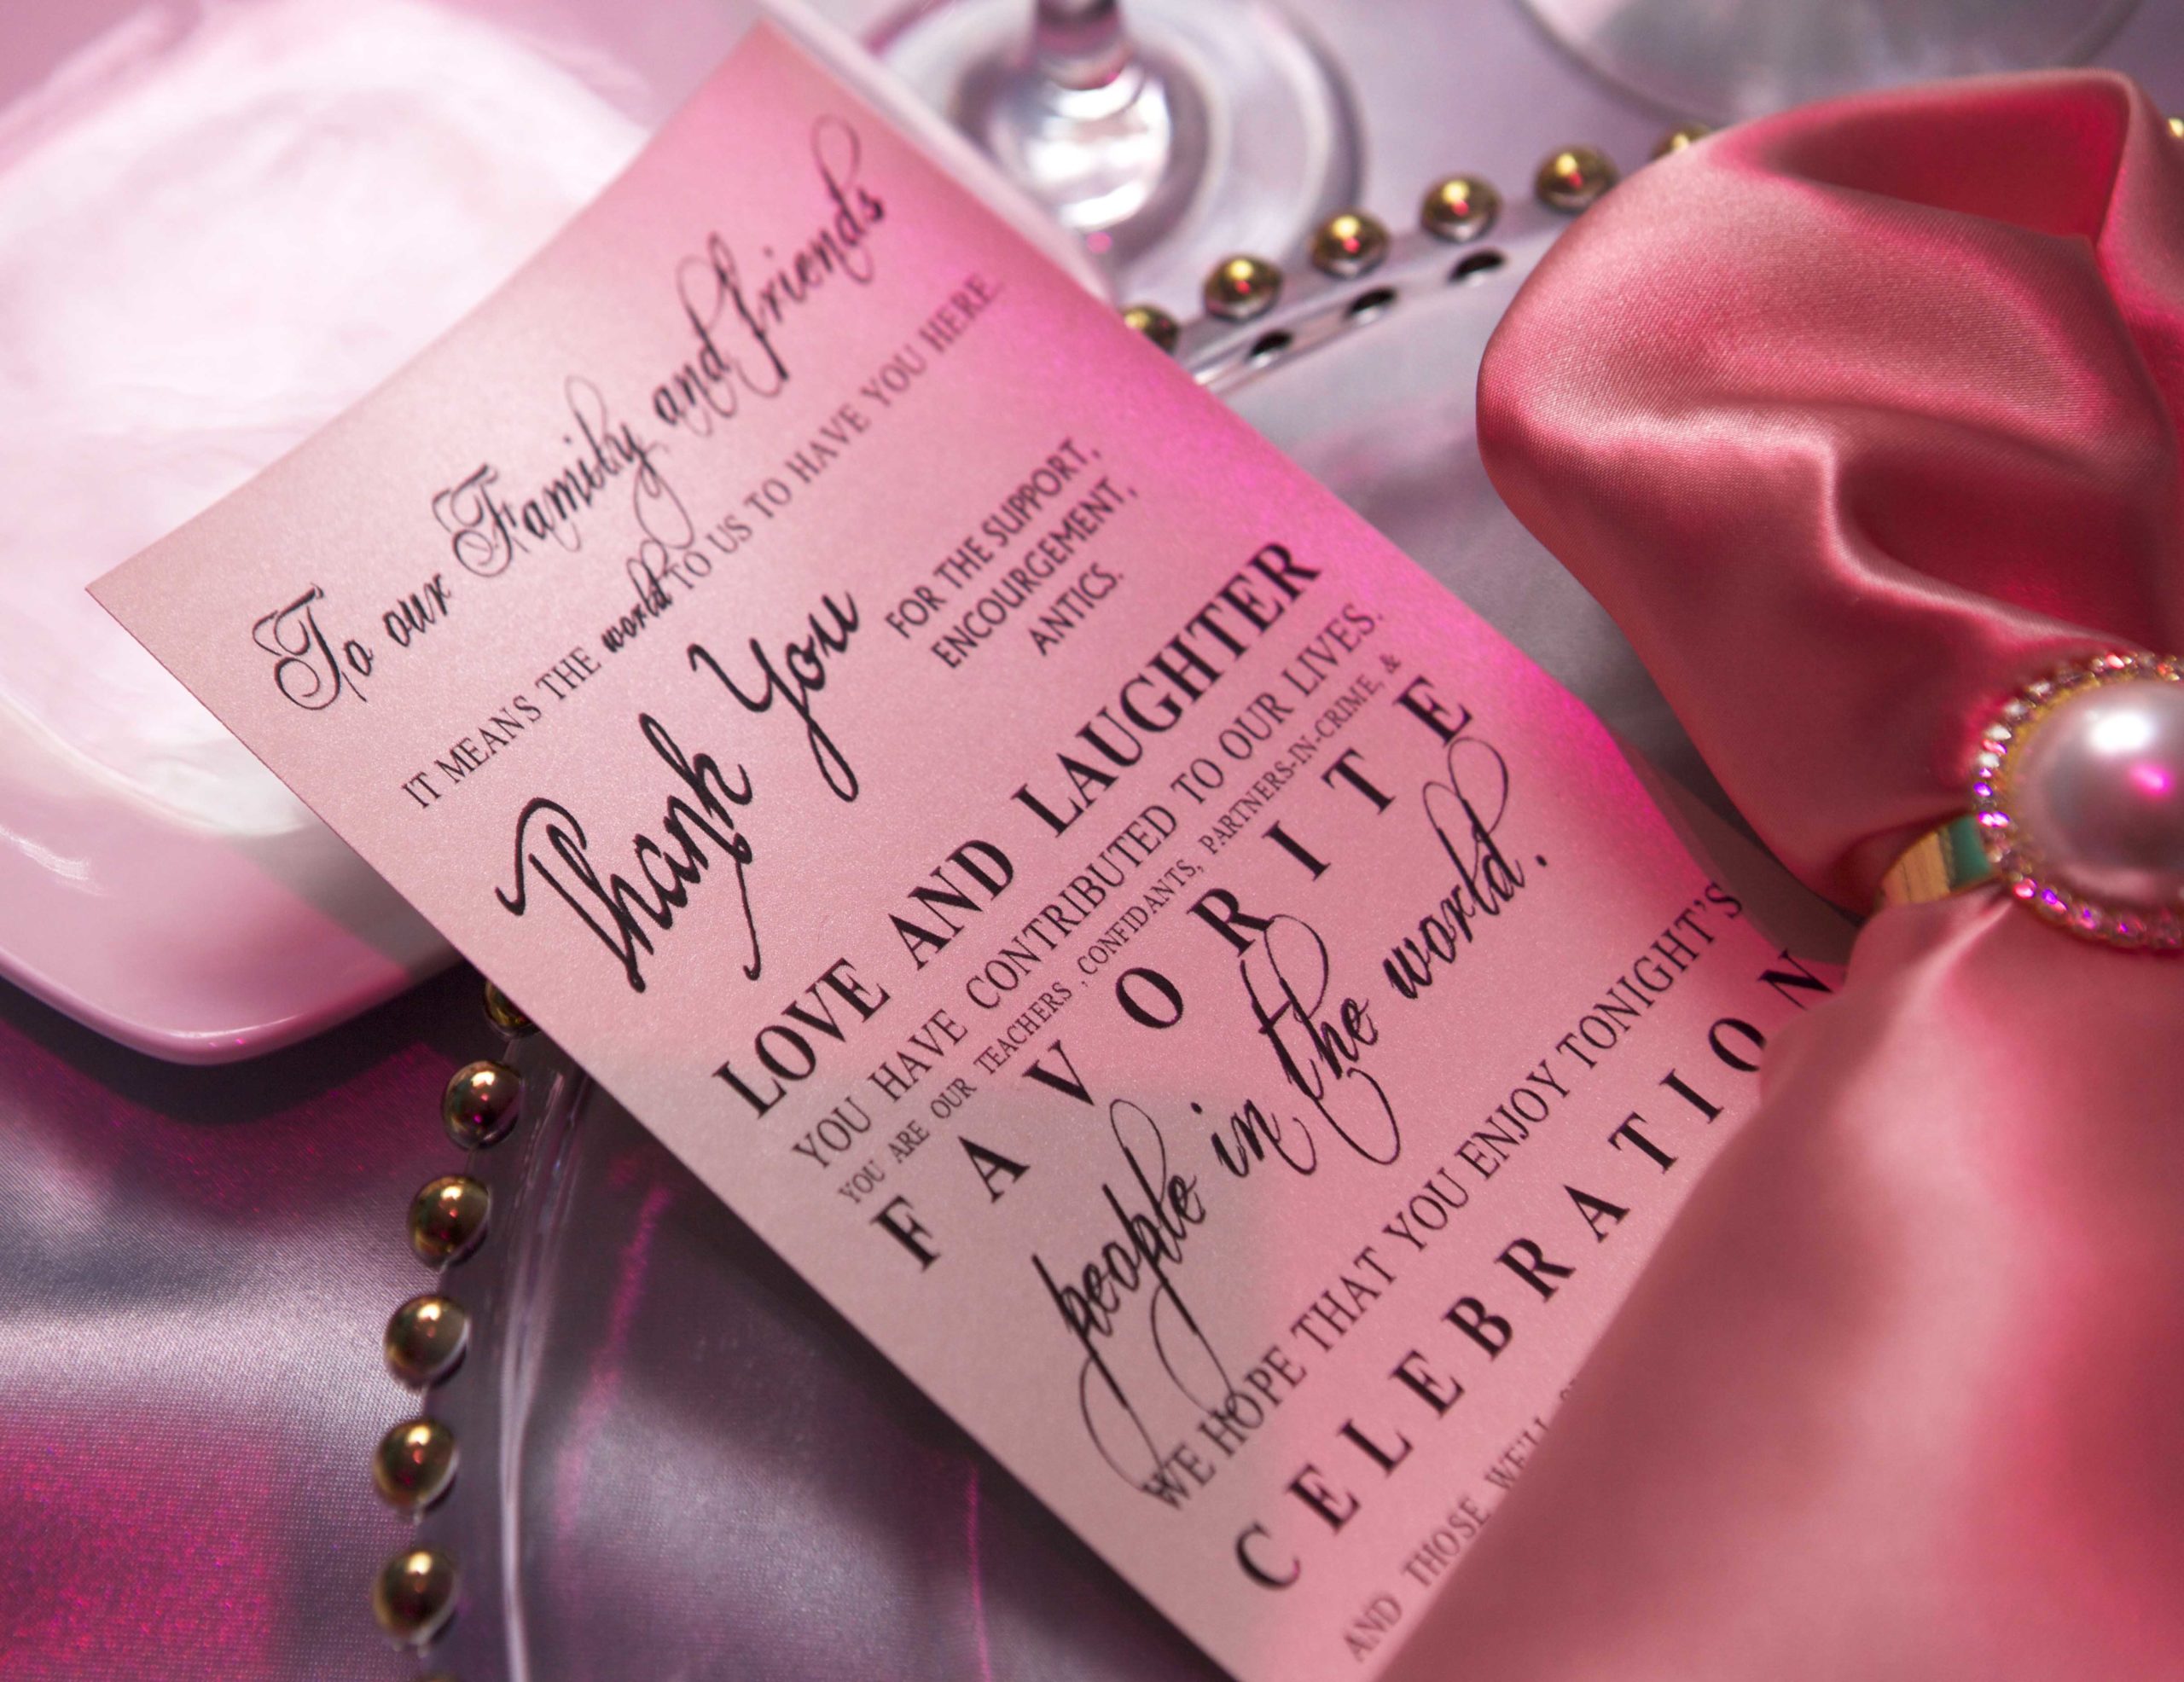 To our Family and friends
IT MEANS THE world TO US TO HAVE YOU HERE.
Thank You
FOR THE SUPPORT,
ENCOURGEMENT,
ANTICS.
LOVE AND LAUGHTER
YOU HAVE CONTRIBUTED TO OUR LIVES.
YOU ARE OUR TEACHERS ,CONFIDANTS, PARTNERS-IN-CRIME, &
FAVORITE
people in the world.
WE HOPE THAT YOU ENJOY TONIGHT'S
CELEBRATION
AND THOSE WE'LL